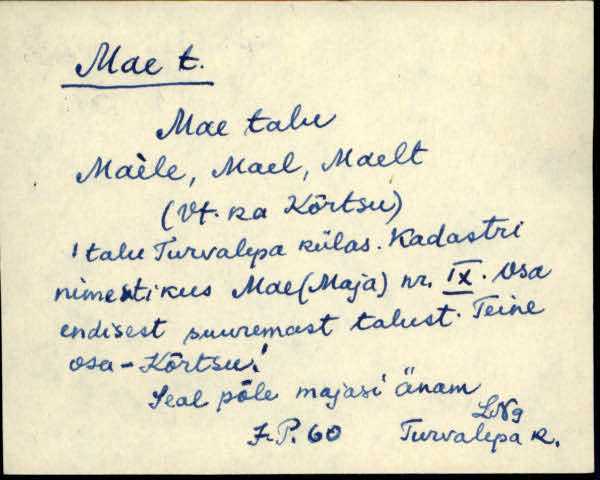 Mae t.
Mae talu
Maèle, Mael, Maelt
(Vt. ka Kõrtsu)
'talu Turvalepa külas. Kadastri
nimestikus Mae (Maja) nr. IX. Osa
endisest suuremast talust. Teine
osa - Kõrtsu.'
Seal põle majasi änam
LNg
F.P. 60 Turvalepa k.